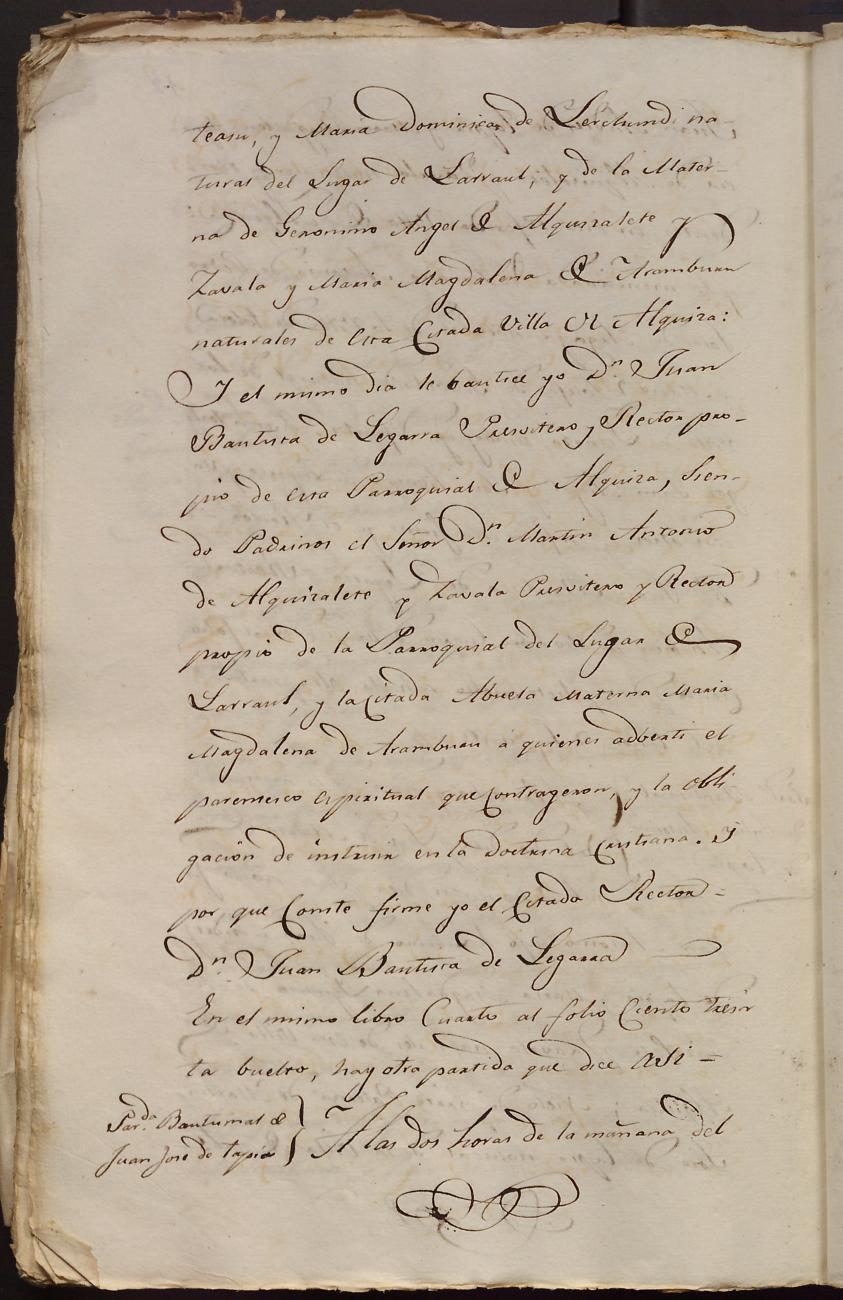 teasu, y Maria Dominica de Lerchundi na-
turas del Lugar de Larraul, y de la Mater-
na de Geronimo Angel de Alquizalete y
Zavala y Maria Magdalena de Aramburu
naturales de esta Citada Villa de Alquiza:
Y el mismo dia le bautice yo Dn. Juan
Bautista de Legarra Presvitero y Rector pro-
pio de esta Parroquial de Alquiza, sien-
do Padrinos el Señor Dn. Martin Antonio
de Alquizalete y Zavala Presvitero y Rector
propio de la Parroquial del Lugar de
Larraul, y la Citada Abuela Materna Maria
Magdalena de Aramburu a quienes adverti el
parentesco espiritual que Contrageron, y la obli
gacion de instruir en la Doctrina Cristiana. Y
por que Conste firme yo el Citado Rector -
Dn. Juan Bautista de Legarra
En el mismo libro Cuarto al folio Ciento trein
ta buelto, hay otra partida que dice asi -
Par.da Bautismal de
Juan José de tapia
A las dos horas de la mañana del